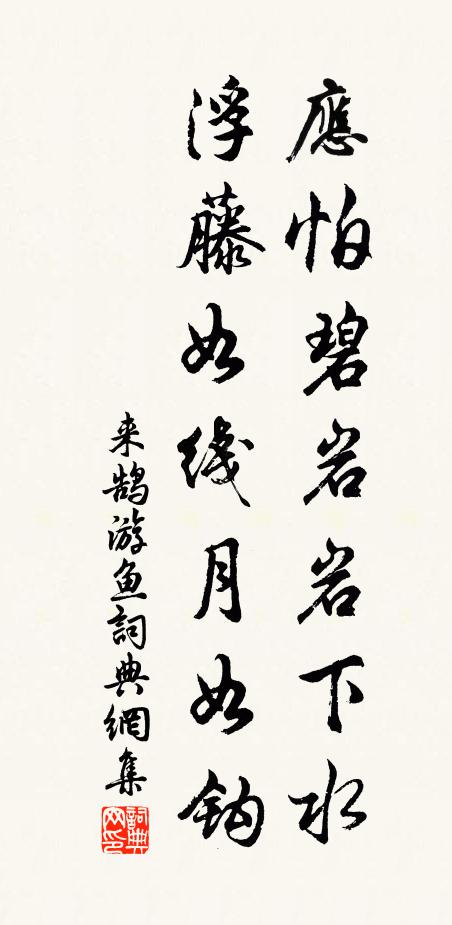 應怕碧岩岩下水
浮藤如线月如鈎
来鹄游鱼詞典網集
詞典网印